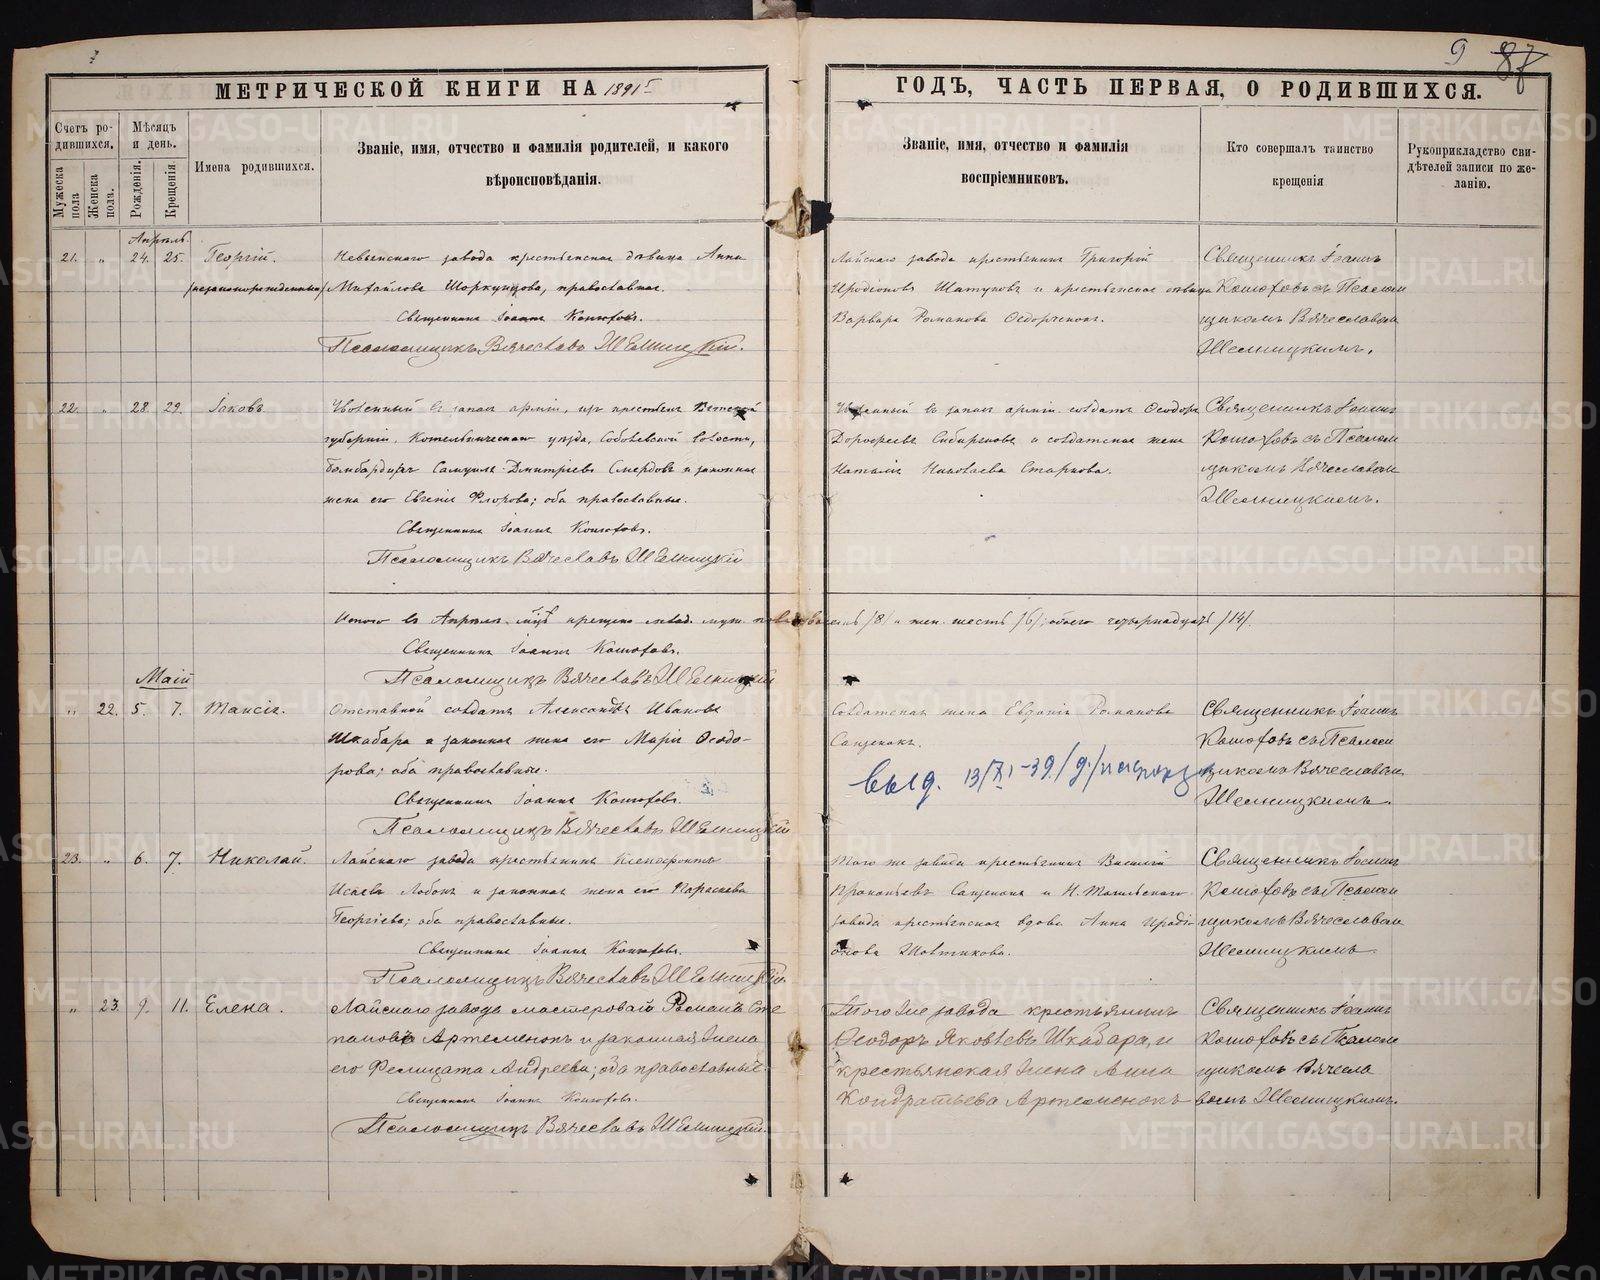 9 87
МЕТРИЧЕСКОЙ КНИГИ НА 1891 г
ГОДЪ, ЧАСТЬ ПЕРВАЯ, О РОДИВШИХСЯ.
Счетъ ро-
дившихся.
Мужеска пола
Женска пола.
Мѣсяцъ
и день.
Рожденія.
Крещенія
Имена родившихся.
Званіе, имя, отчество и фамилія родителей, и какого
вѣроисповѣданія.
Званіе, имя, отчество и фамилія
воспріемниковъ.
Кто совершалъ таинство
крещенія
Рукоприкладство сви-
дѣтелей записи по же-
ланію.
Апрѣль.
21. " 24. 25. Георгій.
(незаконорожденный)
Невьянскаго завода крестьянская дѣвица Анна
Михайлова, православная.
Священникъ Іоаннъ
Псаломщикъ Вячеславъ
Лайскаго завода крестьянинъ Григорій
Иродіоновъ и крестьянская дѣвица
Варвара Романова
Священникъ Іоаннъ
съ Псалом
щикомъ Вячеславом
22. " 28. 29. Іаковъ.
Уволенный въ запас арміи, изъ крестьян Вятской
губерніи, Котельническаго уѣзда, волости,
бомбардиръ Самуилъ Дмитріевъ Смердовъ и законная
жена его Евгенія Флорова; оба православные.
Священникъ Іоаннъ
Псаломщикъ Вячеславъ
Уволенный въ запас арміи солдатъ Ѳеодоръ
Дороѳеевъ и солдатская жена
Наталія Николаева Старкова.
Священникъ Іоаннъ
съ Псалом
щикомъ Вячеславом
Итого въ Апрѣлѣ м-цѣ крещено млад. муж. пола восемь /8/ и жен. шесть /6/; обоего четырнадцать /14/.
Священникъ Іоаннъ
Псаломщикъ Вячеславъ
Маій
" 22. 5. 7. Таисія.
Отставной солдатъ Александръ Ивановъ
Шкабара и законная жена его Марія Ѳеодо-
рова; оба православные.
Священникъ Іоаннъ
Псаломщикъ Вячеславъ
Солдатская жена Евдокія Романова
Сапенокъ.
выд. 13/XI-39
Священникъ Іоаннъ
съ Псалом
щикомъ Вячеславом
23. " 6. 7. Николай.
Лайскаго завода крестьянинъ Ксенофонтъ
Исаевъ и законная жена его Параскева
Георгіева; оба православные.
Священникъ Іоаннъ
Псаломщикъ Вячеславъ
Того же завода крестьянинъ Василій
Прокопьевъ Сапенокъ и Н. Тагильскаго
завода крестьянская вдова Анна Иродіо-
нова
Священникъ Іоаннъ
съ Псалом
щикомъ Вячеславом
" 23. 9. 11. Елена.
Лайскаго завода мастеровой Романъ Сте
пановъ Артеменокъ и законная жена
его Фелицата Андреева; оба православные.
Священникъ Іоаннъ
Псаломщикъ Вячеславъ
Того же завода крестьянинъ
Ѳеодоръ Яковлевъ Шкабара, и
крестьянская жена Анна
Кондратьева Артеменокъ
Священникъ Іоаннъ
съ Псалом
щикомъ Вячесла
вомъ
METRIKI.GASO-URAL.RU